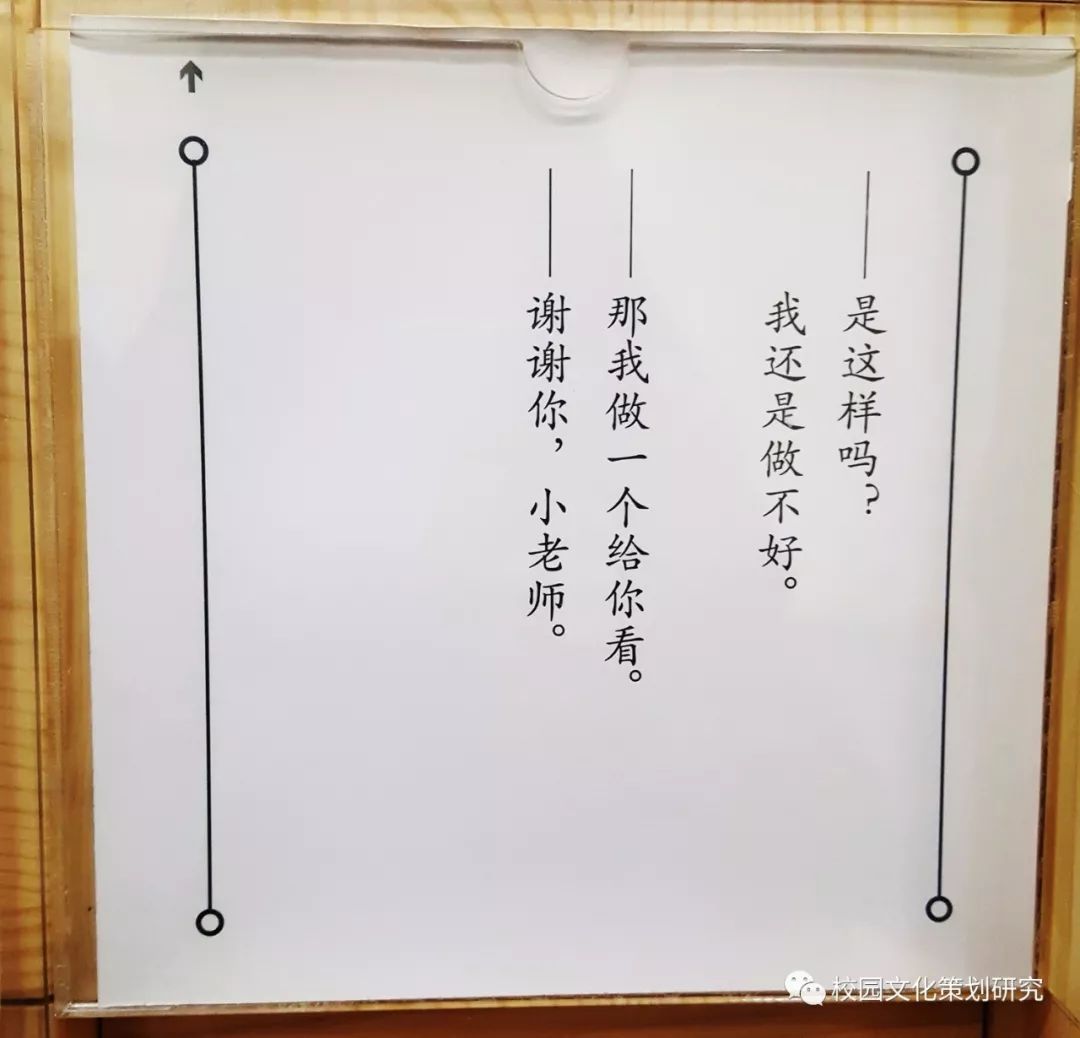 ——是这样吗？
我还是做不好。
——那我做一个给你看。
——谢谢你，小老师。
校园文化策划研究